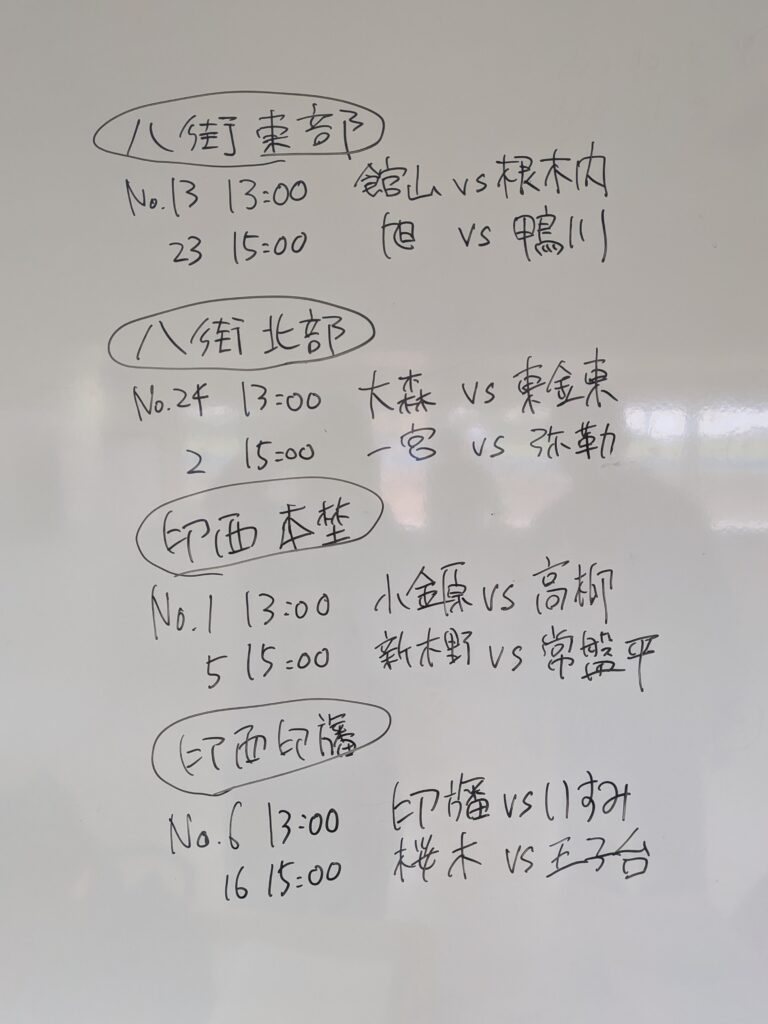 八街東部
No.13 13:00 館山 vs 根木内
23 15:00 旭 vs 鴨川
八街北部
No.24 13:00 大森 vs 東金東
2 15:00 一宮 vs 弥勒
印西本埜
No.1 13:00 小金原 vs 高柳
5 15:00 新木野 vs 常盤平
印西印旛
No.6 13:00 印旛 vs いすみ
16 15:00 桜木 vs 王子台